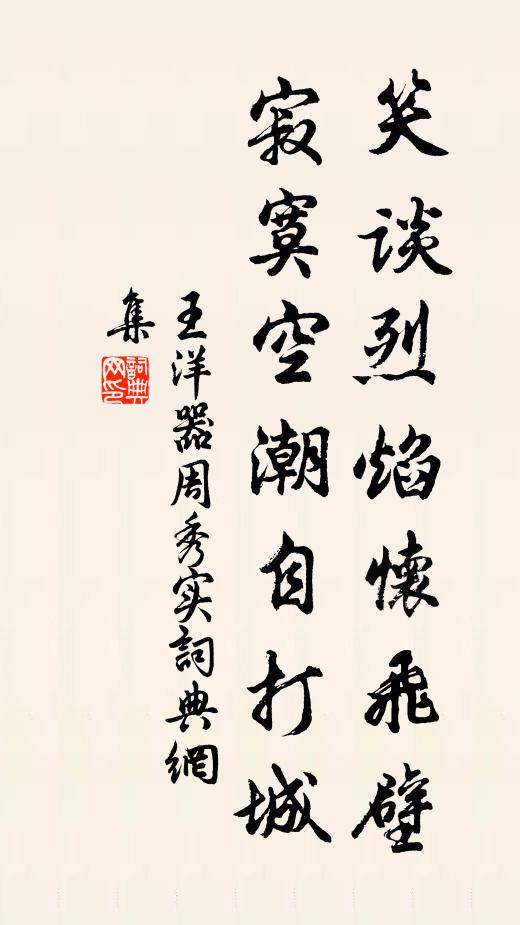 笑談烈焰懷飛壁
寂寞空潮自打城
王洋器周秀实詞典網
集
詞典网印